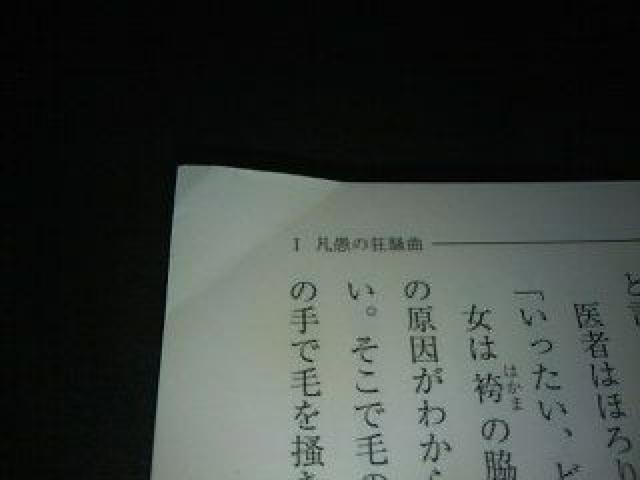 I 凡愚の狂騒曲
医者はほろり
「いったい、ど
女は袴の脇
はかま
の原因がわから
い。そこで毛の
の手で毛を掻き